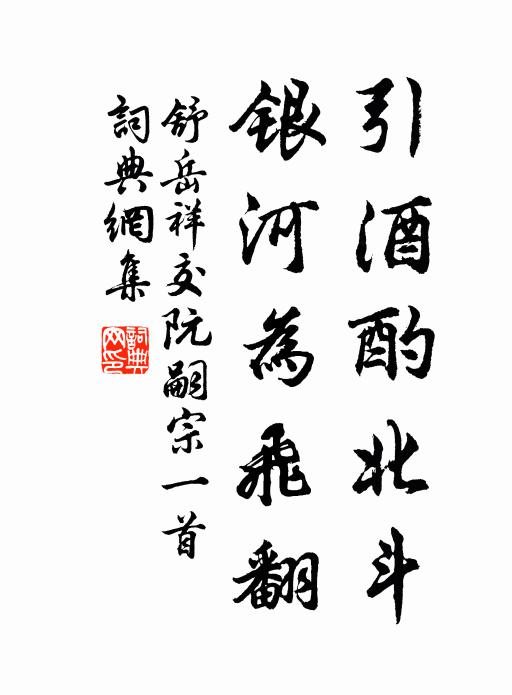 引酒酌北斗
銀河為飛翻
舒岳祥交阮嗣宗一首
詞典網集
詞典網印